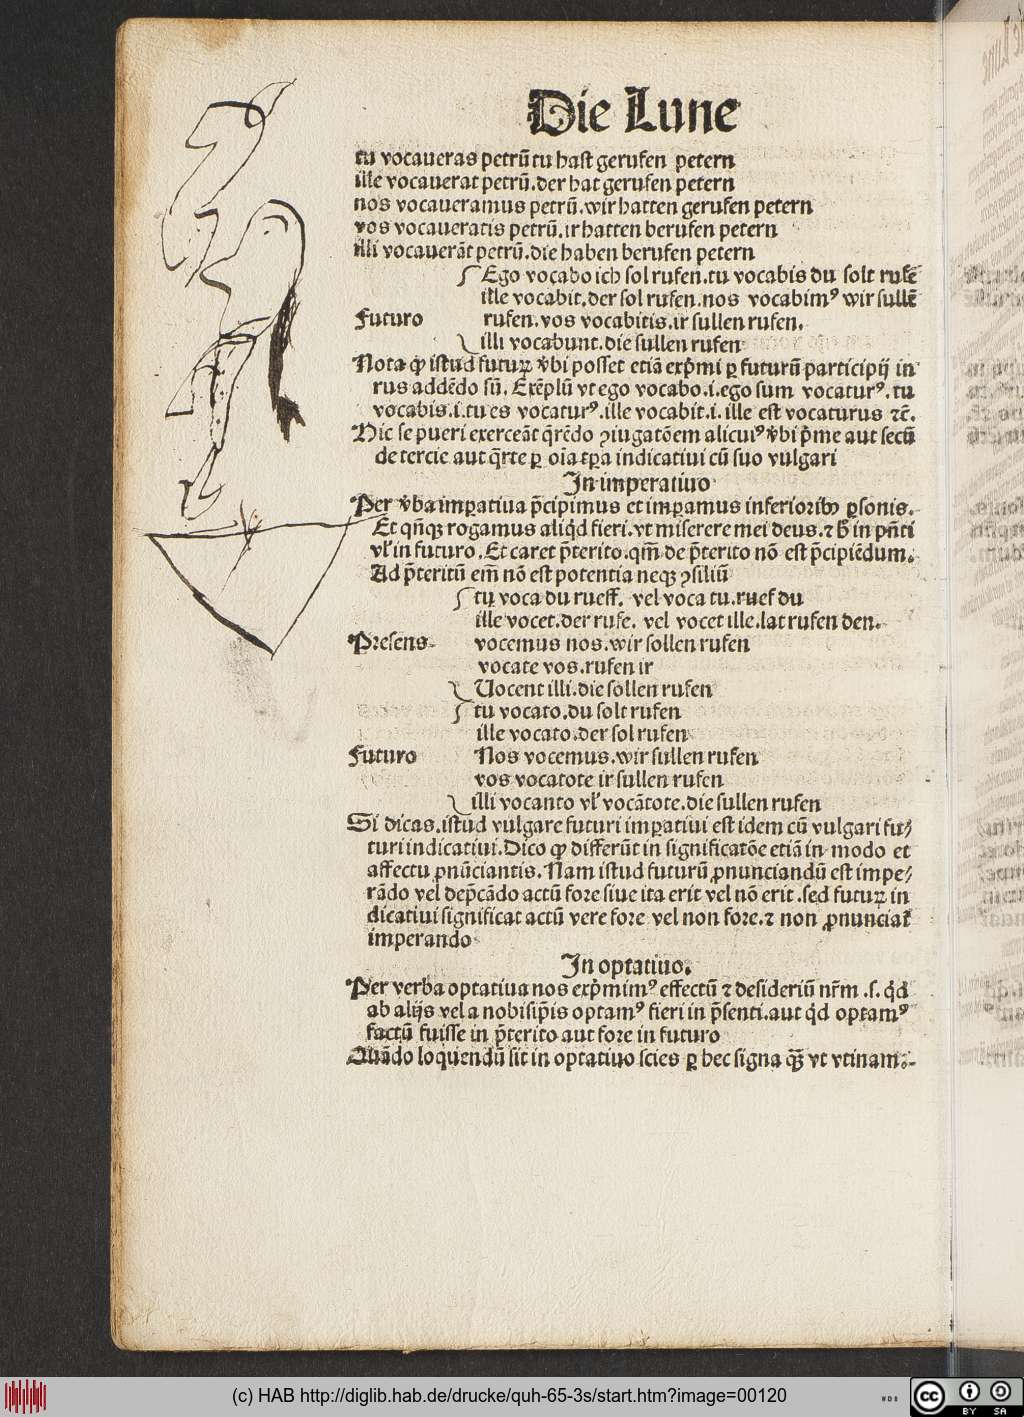 Die Lune
tu vocaueras petrū tu hast gerufen petern
ille vocauerat petrū. der hat gerufen petern
nos vocaueramus petrū. wir hatten gerufen petern
vos vocaueratis petrū. ir hatten berufen petern
illi vocauerāt petrū. die haben berufen petern
Ego vocabo ich sol rufen. tu vocabis du solt rufē
ille vocabit. der sol rufen. nos vocabimꝰ wir sullē
Futuro rufen. vos vocabitis. ir sullen rufen.
illi vocabunt. die sullen rufen
Nota ꝙ istud futuꝝ v̄bi posset etiā exp̄mi ꝑ futurū participij in
rus addēdo sū. Exēplū vt ego vocabo .i. ego sum vocaturꝰ. tu
vocabis .i. tu es vocaturꝰ. ille vocabit .i. ille est vocaturus ⁊c̄.
Hic se pueri exerceāt q̄rēdo ꝯiugatōem alicuiꝰ v̄bi p̄me aut secū
de tercie aut q̄rte ꝑ oīa tꝑa indicatiui cū suo vulgari
In imperatiuo
Per v̄ba imꝑatiua p̄cipimus et imꝑamus inferioribꝰ ꝑsonis.
Et qn̄qꝫ rogamus aliqͥd fieri. vt miserere mei deus. ⁊ hͦ in pn̄ti
vl' in futuro. Et caret p̄terito. qm̄ de p̄terito nō est p̄cipiēdum.
Ad p̄teritū em̄ nō est potentia neqꝫ ꝯsiliū
tu voca du rueff. vel voca tu. ruef du
ille vocet. der rufe. vel vocet ille. lat rufen den.
Presens vocemus nos. wir sollen rufen
vocate vos. rufen ir
Uocent illi. die sollen rufen
tu vocato. du solt rufen
ille vocato. der sol rufen
Futuro Nos vocemus. wir sullen rufen
vos vocatote ir sullen rufen
illi vocanto vl' vocātote. die sullen rufen
Si dicas. istud vulgare futuri imꝑatiui est idem cū vulgari fu⸗
turi indicatiui. Dico ꝙ differūt in significatōe etiā in modo et
affectu ꝓnūciantis. Nam istud futurū ꝓnunciandū est impe⸗
rādo vel dep̄cādo actū fore siue ita erit vel nō erit. sed futuꝝ in
dicatiui significat actū vere fore vel non fore. ⁊ non ꝓnunciat̄
imperando
In optatiuo.
Per verba optatiua nos exp̄mimꝰ effectū ⁊ desideriū nr̄m .s. qͥd
ab alijs vel a nobisip̄is optamꝰ fieri in p̄senti. aut qͥd optamꝰ
factū fuisse in p̄terito aut fore in futuro
Quādo loquendū sit in optatiuo scies ꝑ hec signa qꝫ vt vtinam.
(c) HAB http://diglib.hab.de/drucke/quh-65-3s/start.htm?image=00120
WDB
cc BY SA